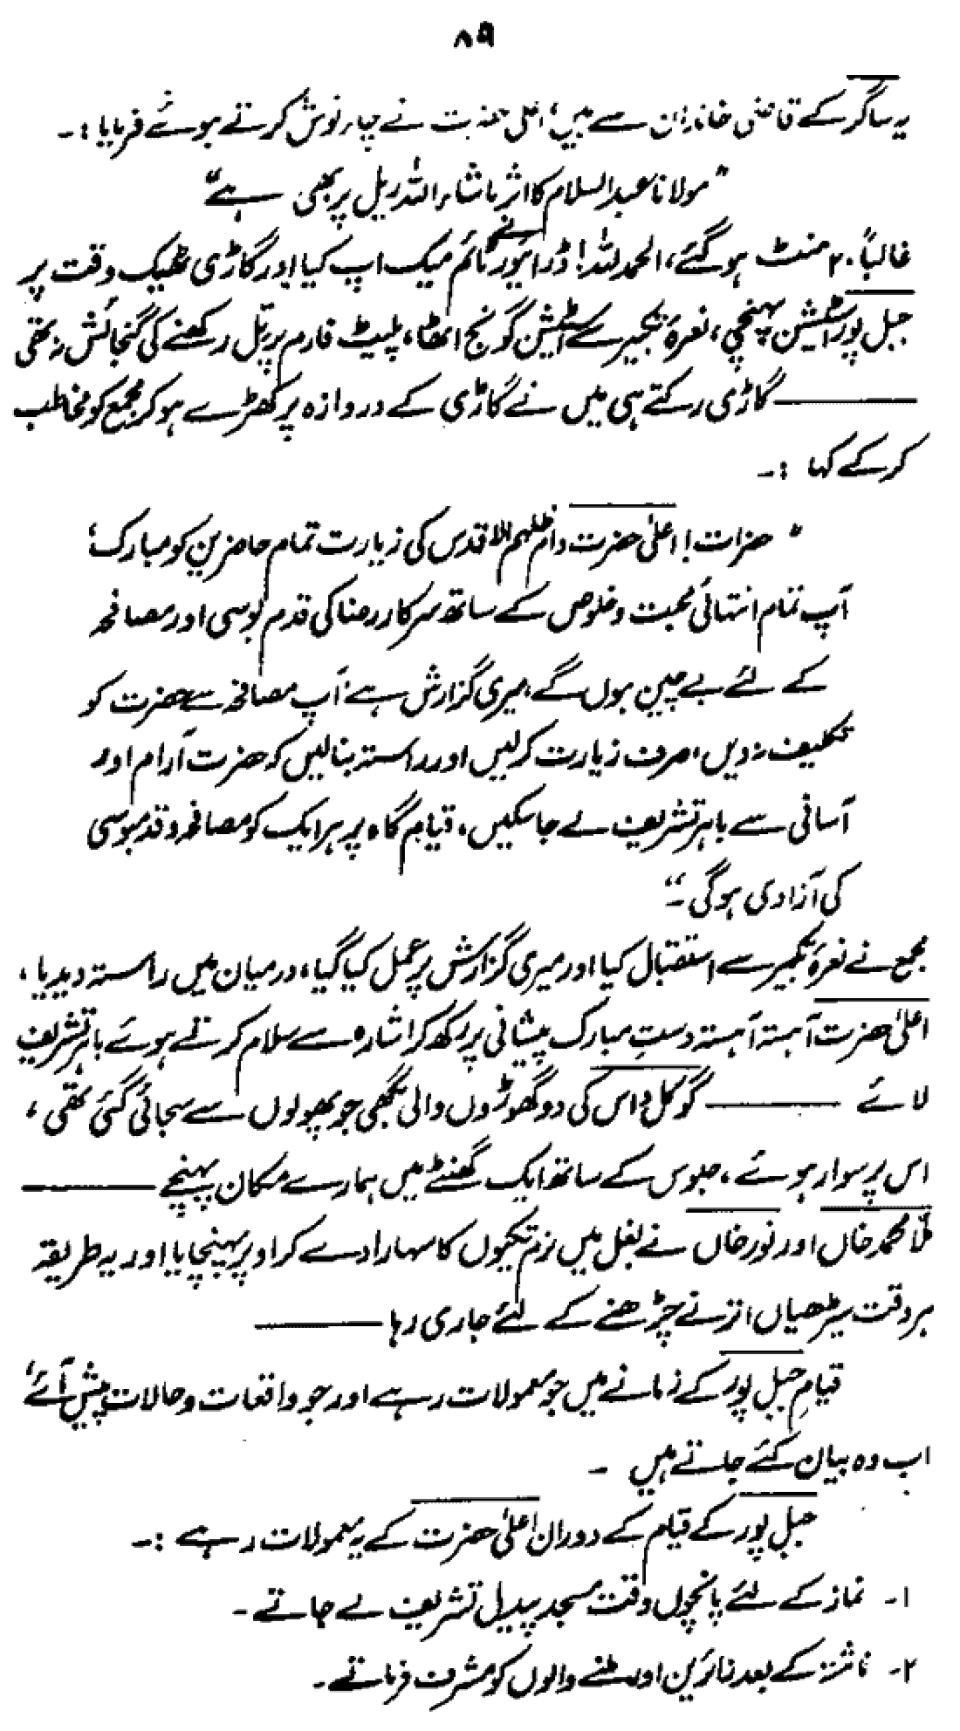 ۸۹
یہ ساگر کے قاضی خاندان سے ہیں، اعلیٰ حضرت نے چاء نوش کرتے ہوئے فرمایا :۔
"مولانا عبدالسلام کا اثر ماشاء اللہ ریل پر بھی ہے"
غالباً ۲۰ منٹ ہو گئے، الحمد للہ! ڈرائیور نے ٹائم میک اپ کیا اور گاڑی ٹھیک وقت پر
جبل پور اسٹیشن پہنچی، نعرۂ تکبیر سے اسٹیشن گونج اٹھا، پلیٹ فارم پر تِل رکھنے کی گنجائش نہ تھی
——— گاڑی رکتے ہی میں نے گاڑی کے دروازہ پر کھڑے ہو کر مجمع کو مخاطب
کر کے کہا :۔
"حضرات! اعلیٰ حضرت دام ظلہم الاقدس کی زیارت تمام حاضرین کو مبارک،
آپ تمام انتہائی محبت و خلوص کے ساتھ سرکار رضا کی قدم بوسی اور مصافحہ
کے لئے بے چین ہوں گے، میری گزارش ہے، آپ مصافحہ سے حضرت کو
تکلیف نہ دیں، صرف زیارت کر لیں اور راستہ بنا لیں کہ حضرت آرام اور
آسانی سے باہر تشریف لے جا سکیں، قیام گاہ پر ہر ایک کو مصافحہ و قدمبوسی
کی آزادی ہو گی۔"
مجمع نے نعرۂ تکبیر سے استقبال کیا اور میری گزارش پر عمل کیا گیا، درمیان میں راستہ دیدیا،
اعلیٰ حضرت آہستہ آہستہ دستِ مبارک پیشانی پر رکھ کر اشارہ سے سلام کرتے ہوئے باہر تشریف
لائے ——— گوکل داس کی دو گھوڑوں والی بگھی جو پھولوں سے سجائی گئی تھی،
اس پر سوار ہوئے، جلوس کے ساتھ ایک گھنٹے میں ہمارے مکان پہنچے ———
مُلّا محمد خاں اور نور خاں نے بغل میں نرم تکیوں کا سہارا دے کر اوپر پہنچایا اور یہ طریقہ
ہر وقت سیڑھیاں اترنے چڑھنے کے لئے جاری رہا ———
قیامِ جبل پور کے زمانے میں جو معمولات رہے اور جو واقعات و حالات پیش آئے،
اب وہ بیان کئے جاتے ہیں ۔
جبل پور کے قیام کے دوران اعلیٰ حضرت کے یہ معمولات رہے :۔
۱۔ نماز کے لئے پانچوں وقت مسجد پیدل تشریف لے جاتے ۔
۲۔ ناشتہ کے بعد زائرین اور ملنے والوں کو مشرف فرماتے ۔